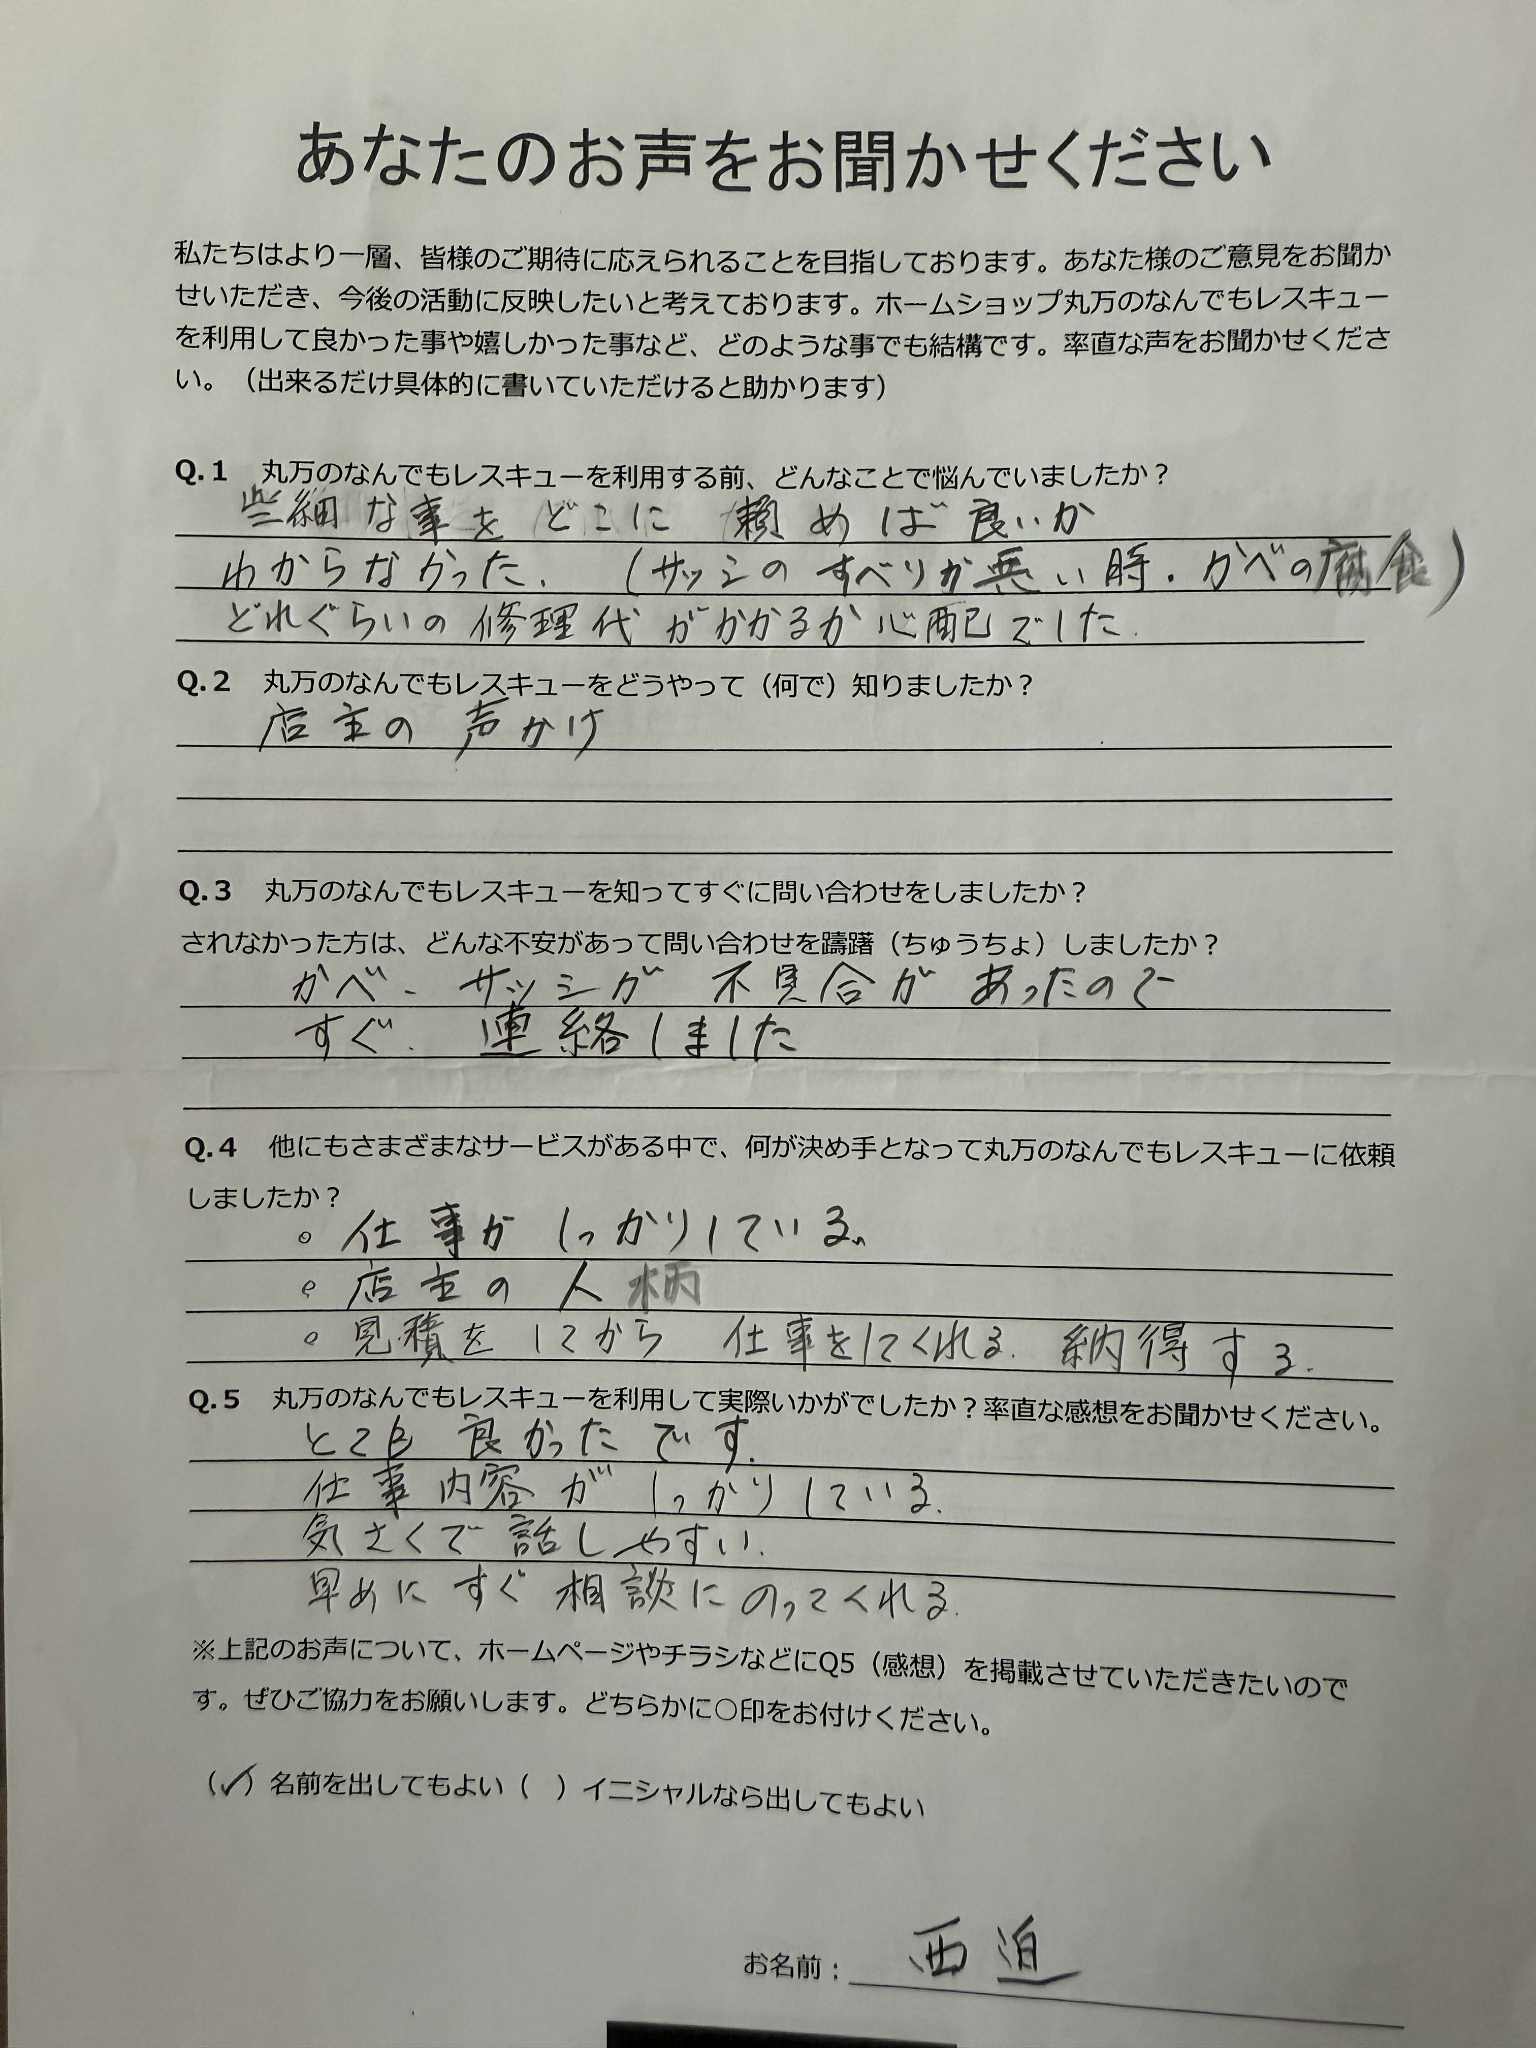 あなたのお声をお聞かせください
私たちはより一層、皆様のご期待に応えられることを目指しております。あなた様のご意見をお聞か
せいただき、今後の活動に反映したいと考えております。ホームショップ丸万のなんでもレスキュー
を利用して良かった事や嬉しかった事など、どのような事でも結構です。率直な声をお聞かせくださ
い。（出来るだけ具体的に書いていただけると助かります）
Q.1　丸万のなんでもレスキューを利用する前、どんなことで悩んでいましたか？
些細な事を どこに 頼めば良いか
わからなかった.（サッシのすべりが悪い時.かべの腐食）
どれぐらいの修理代がかかるか心配でした.
Q.2　丸万のなんでもレスキューをどうやって（何で）知りましたか？
店主の声かけ
Q.3　丸万のなんでもレスキューを知ってすぐに問い合わせをしましたか？
されなかった方は、どんな不安があって問い合わせを躊躇（ちゅうちょ）しましたか？
かべ、サッシが 不具合が あったので
すぐ. 連絡しました
Q.4　他にもさまざまなサービスがある中で、何が決め手となって丸万のなんでもレスキューに依頼
しましたか？
。仕事が しっかりしている。
。店主の人柄
。見積をしてから 仕事をしてくれる. 納得する.
Q.5　丸万のなんでもレスキューを利用して実際いかがでしたか？率直な感想をお聞かせください。
とても良かったです.
仕事内容が しっかりしている.
気さくで話しやすい.
早めにすぐ相談にのってくれる.
※上記のお声について、ホームページやチラシなどにQ5（感想）を掲載させていただきたいので
す。ぜひご協力をお願いします。どちらかに○印をお付けください。
（✓）名前を出してもよい（　）イニシャルなら出してもよい
お名前：西迫